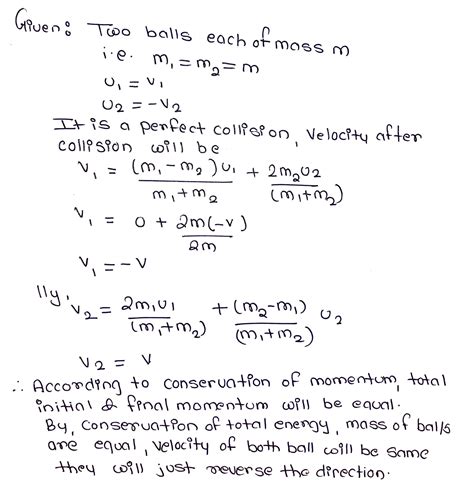 Given: Two balls each of mass m
i.e. m₁ = m₂ = m
u₁ = v₁
u₂ = -v₂
It is a perfect collision, velocity after
collision will be
v₁ = (m₁ - m₂) u₁ / m₁ + m₂ + 2m₂u₂ / (m₁ + m₂)
v₁ = 0 + 2m(-v) / 2m
v₁ = -v
lly, v₂ = 2m₁u₁ / (m₁ + m₂) + (m₂ - m₁) / (m₁ + m₂) u₂
v₂ = v
∴ According to conservation of momentum, total
initial & final momentum will be equal.
By, conservation of total energy, mass of balls
are equal, velocity of both ball will be same
they will just reverse the direction.